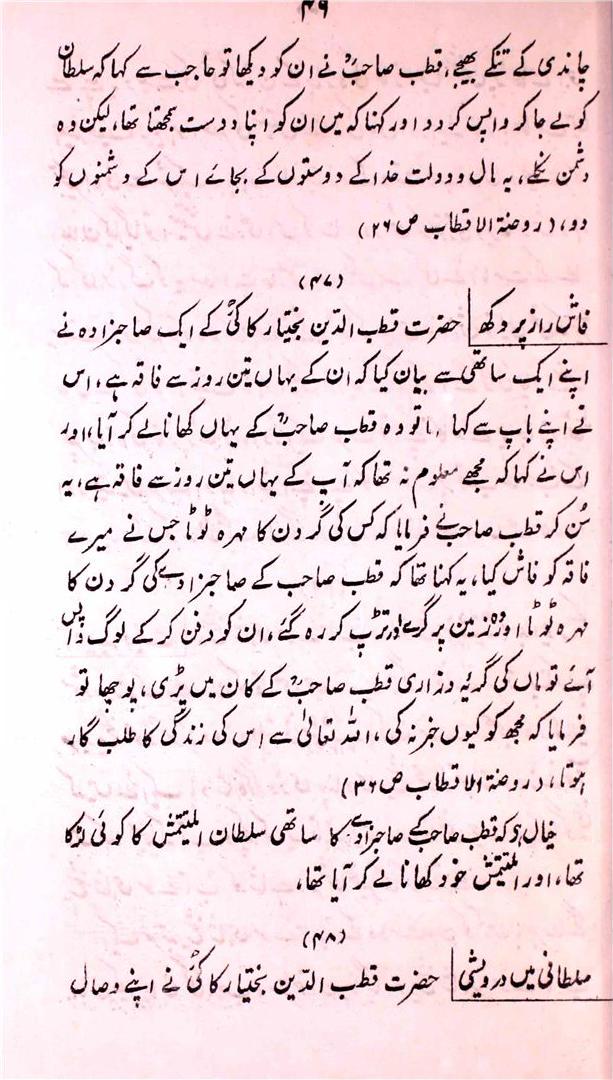 ۴۹
چاندی کے تنکے بھیجے، قطب صاحبؒ نے ان کو دیکھا تو حاجب سے کہا کہ سلطان
کو لے جا کر واپس کر دو اور کہنا کہ میں ان کو اپنا دوست سمجھتا تھا، لیکن وہ
دشمن نکلے، یہ مال و دولت خدا کے دوستوں کے بجائے اس کے دشمنوں کو
دو، (روضۃ الاقطاب ص ۲۶)
(۴۷)
فاش راز پر دکھ حضرت قطب الدین بختیار کاکیؒ کے ایک صاحبزادہ نے
اپنے ایک ساتھی سے بیان کیا کہ ان کے یہاں تین روز سے فاقہ ہے، اس
نے اپنے باپ سے کہا تو وہ قطب صاحبؒ کے یہاں کھانا لے کر آیا، اور
اس نے کہا کہ مجھے معلوم نہ تھا کہ آپ کے یہاں تین روز سے فاقہ ہے، یہ
سُن کر قطب صاحب نے فرمایا کہ کس کی گردن کا مہرہ ٹوٹا جس نے میرے
فاقہ کو فاش کیا، یہ کہنا تھا کہ قطب صاحب کے صاحبزادے کی گردن کا
مہرہ ٹوٹا اور وہ زمین پر گرے اور تڑپ کر رہ گئے، ان کو دفن کر کے لوگ واپس
آئے تو ماں کی گریہ و زاری قطب صاحبؒ کے کان میں پڑی، پوچھا تو
فرمایا کہ مجھ کو کیوں خبر نہ کی، اللہ تعالیٰ سے اس کی زندگی کا طلب گار
ہوتا، (روضۃ الاقطاب ص ۳۶)
خیال ہے کہ قطب صاحب کے صاحبزادے کا ساتھی سلطان التتمش کا کوئی لڑکا
تھا، اور التتمش خود کھانا لے کر آیا تھا،
(۴۸)
سلطانی میں درویشی حضرت قطب الدین بختیار کاکیؒ نے اپنے وصال